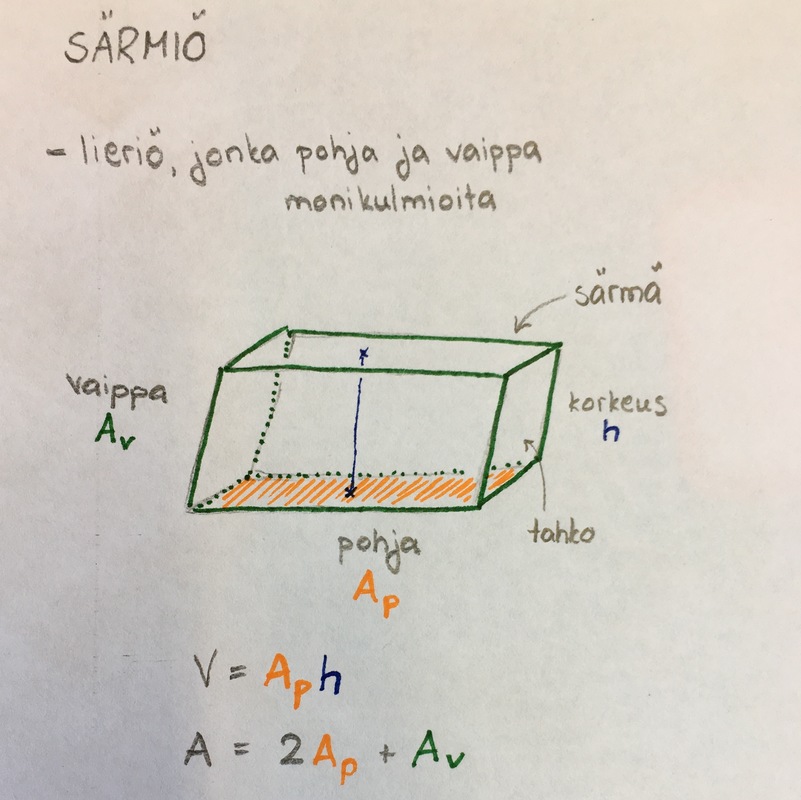 SÄRMIÖ
- lieriö, jonka pohja ja vaippa
monikulmioita
särmä
vaippa
Av
korkeus
h
tahko
pohja
Ap
V = Aph
A = 2Ap + Av